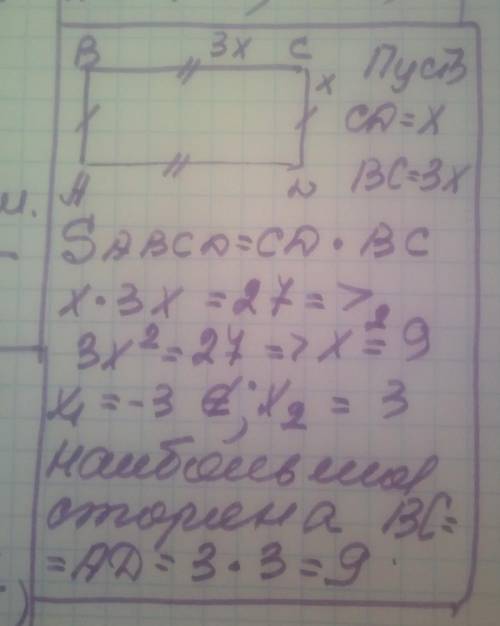 B 3x C
x
Пусть
CD=x
BC=3x
A D
SABCD=CD·BC
x·3x=27=>
3x²=27=>x²=9
x₁=-3 ; x₂=3
наибольшая
сторона BC=
=AD=3·3=9